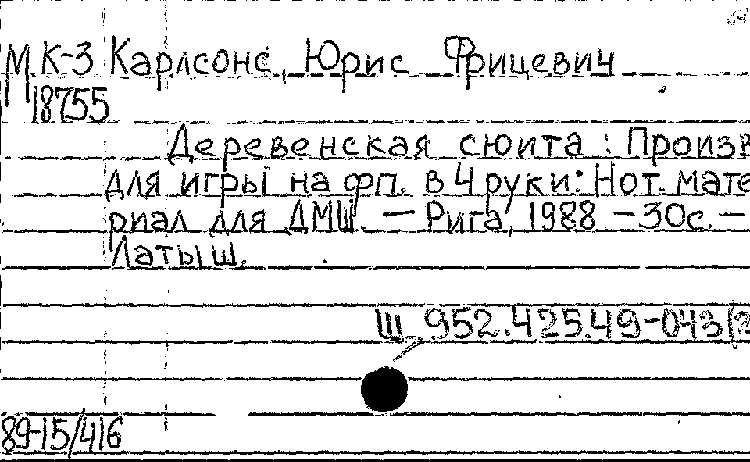 М К-3 Карлсонс, Юрис Фрицевич
18755
Деревенская сюита : Произв
для игры на фп. в 4 руки: Нот. мате
риал для ДМШ. — Рига, 1988 – 30с. –
Латыш.
Ш 952.425.49-043(
89-15/416